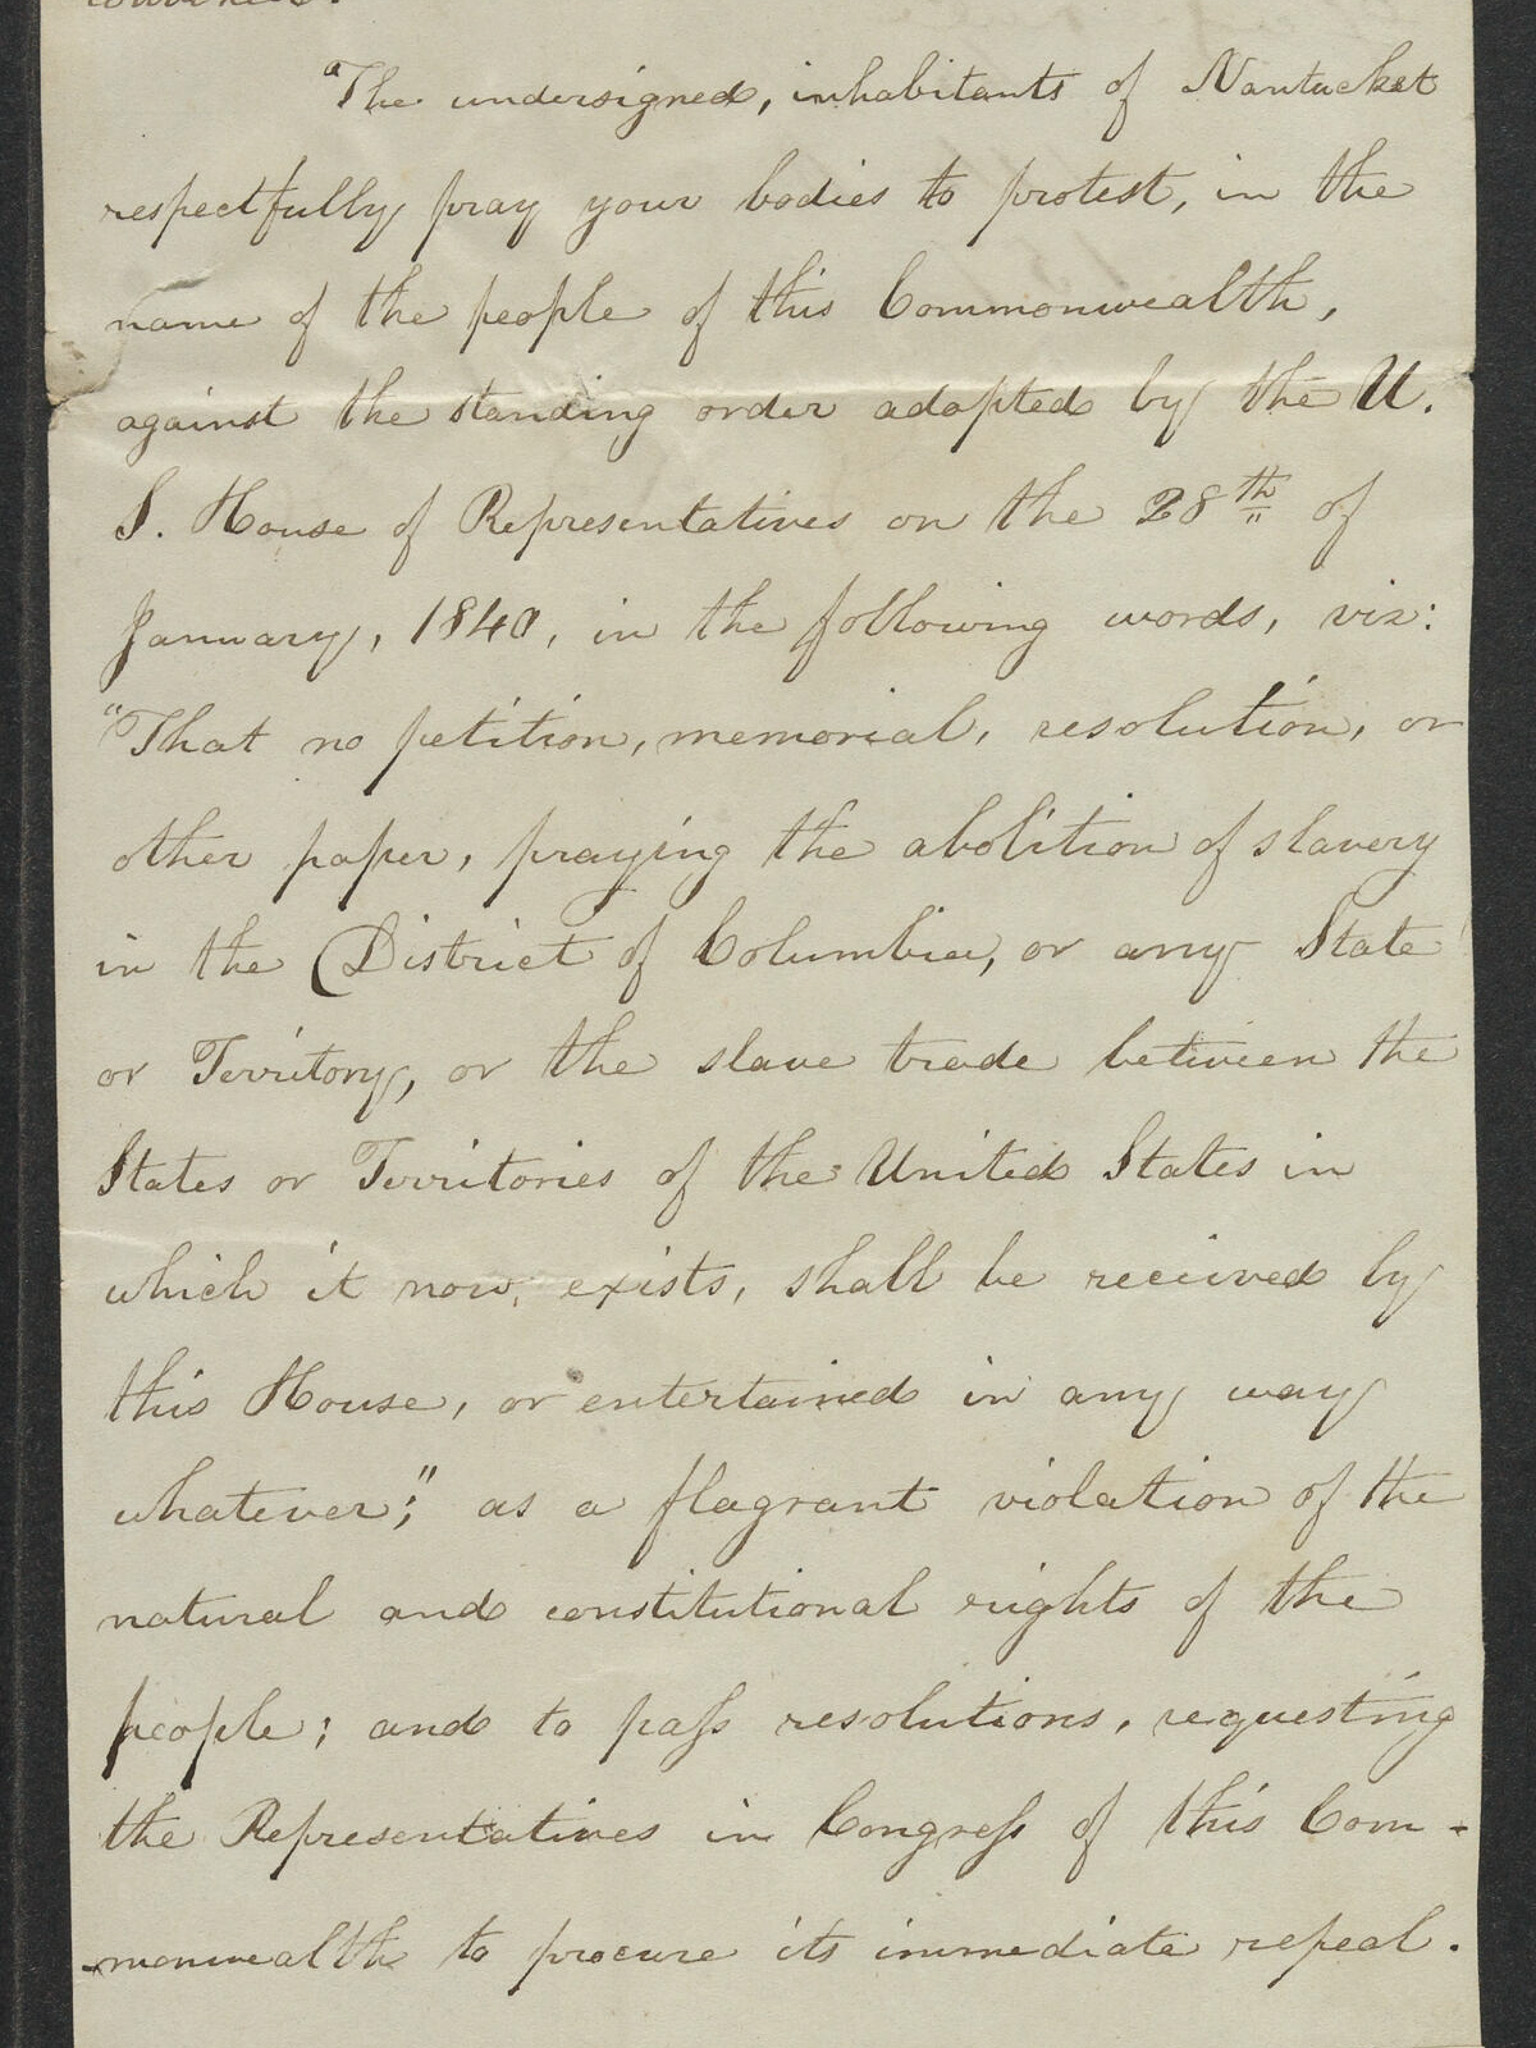 "The undersigned, inhabitants of Nantucket
respectfully pray your bodies to protest, in the
name of the people of this Commonwealth,
against the standing order adopted by the U.
S. House of Representatives on the 28th of
January, 1840, in the following words, viz:
"That no petition, memorial, resolution, or
other paper, praying the abolition of slavery
in the District of Columbia, or any State
or Territory, or the slave trade between the
States or Territories of the United States in
which it now exists, shall be received by
this House, or entertained in any way
whatever;" as a flagrant violation of the
natural and constitutional rights of the
people; and to paſs resolutions, requesting
the Representatives in Congreſs of this Com-
-monwealth to procure its immediate repeal.